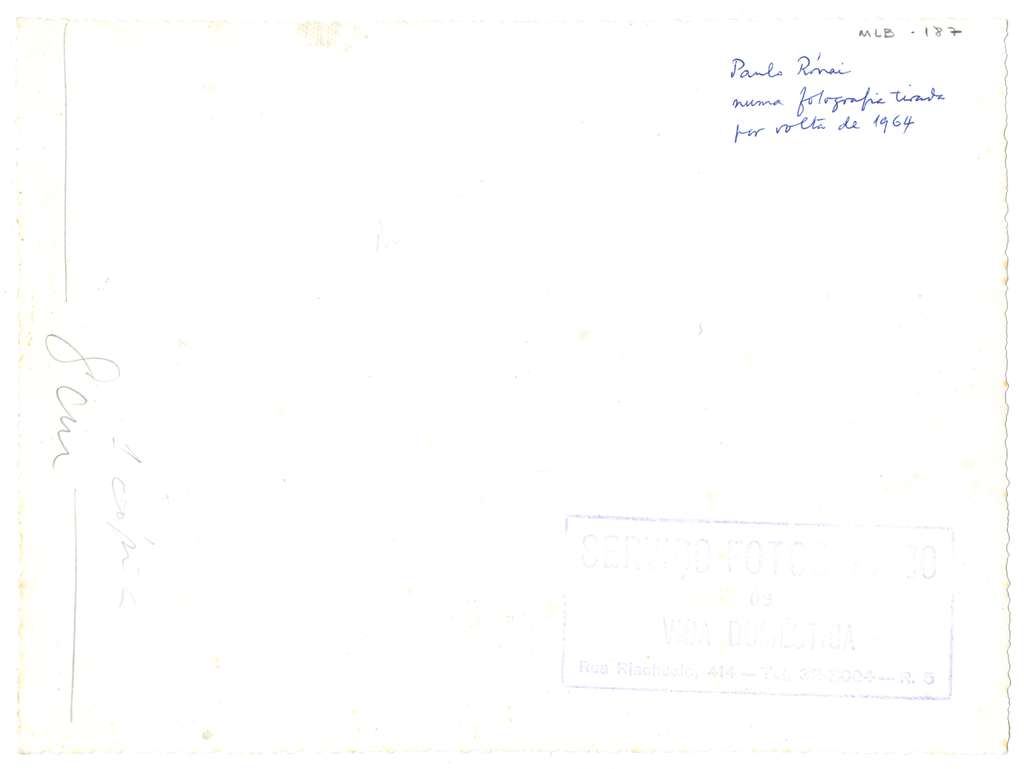 MLB - 187
Paulo Rónai
numa fotografia tirada
por volta de 1964
8 cm
1 cópia
SERVIÇO FOTOGRÁFICO
de
VIDA DOMÉSTICA
Rua Riachuelo, 414 — Tel. — R. 5